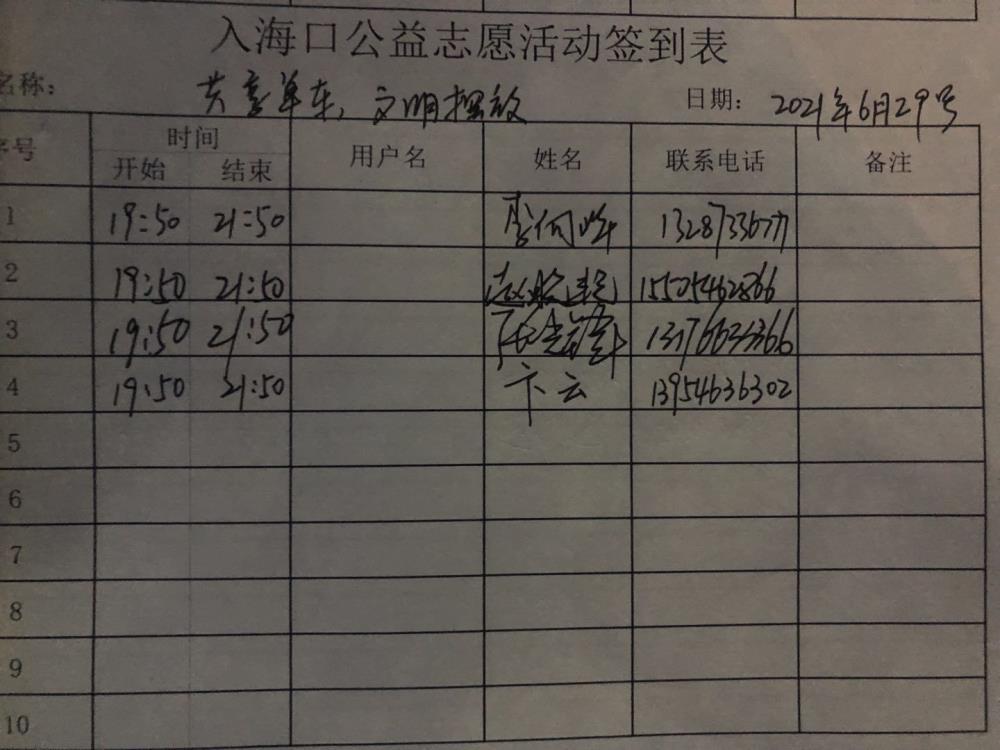 入海口公益志愿活动签到表
名称： 共享单车，文明摆放 日期： 2021年6月29号
序号 时间 用户名 姓名 联系电话 备注
开始 结束
1 19:50 21:50 李向
2 19:50 21:50 赵 15505462866
3 19:50 21:50 张志 13176634366
4 19:50 21:50 卞云 13954636302
5
6
7
8
9
10